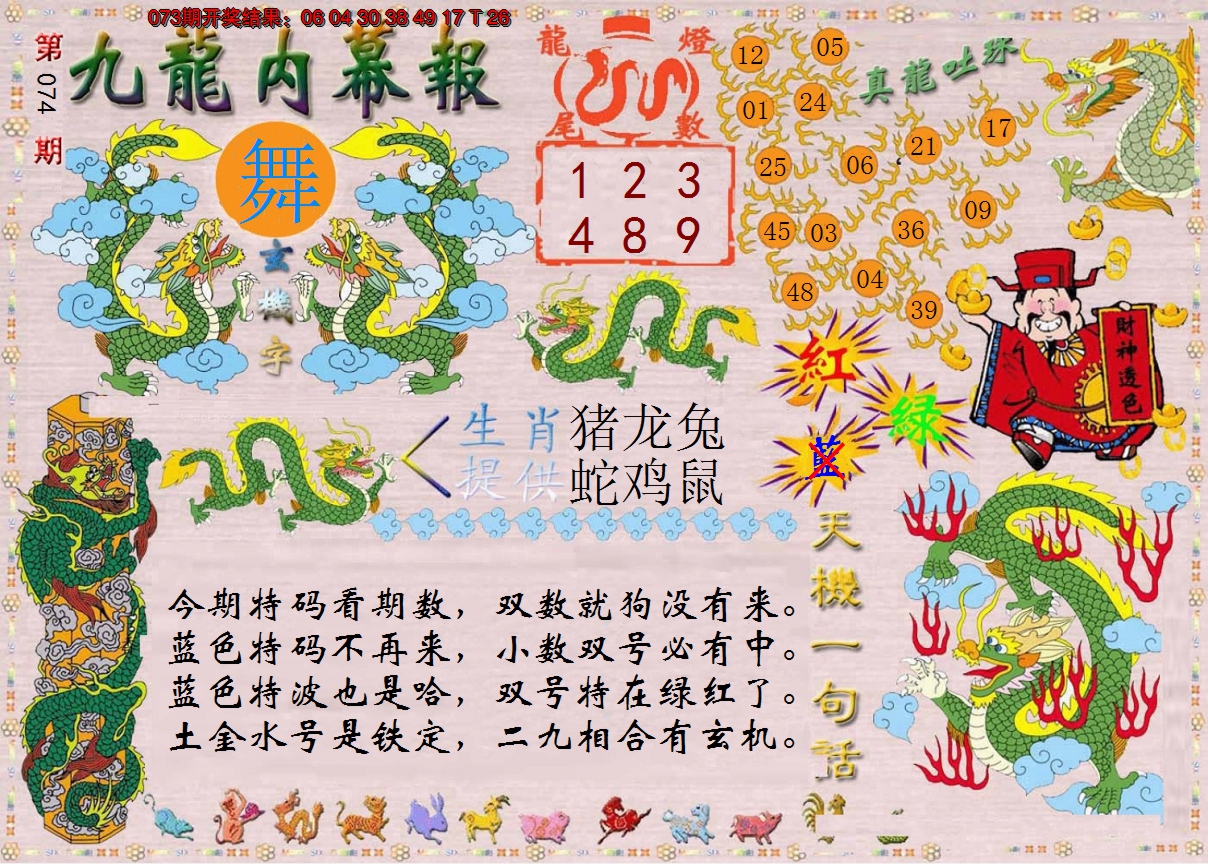 073期开奖结果：06 04 30 38 49 17 T 26
第
074
期
九龍内幕報
舞
玄
機
字
龍燈
尾數
1 2 3
4 8 9
真龍吐珠
12 05
01 24
25 06 21 17
45 03 36 09
48 04 39
財神透色
紅
绿
藍
生肖
提供
猪龙兔
蛇鸡鼠
今期特码看期数，双数就狗没有来。
蓝色特码不再来，小数双号必有中。
蓝色特波也是哈，双号特在绿红了。
土金水号是铁定，二九相合有玄机。
天機一句話